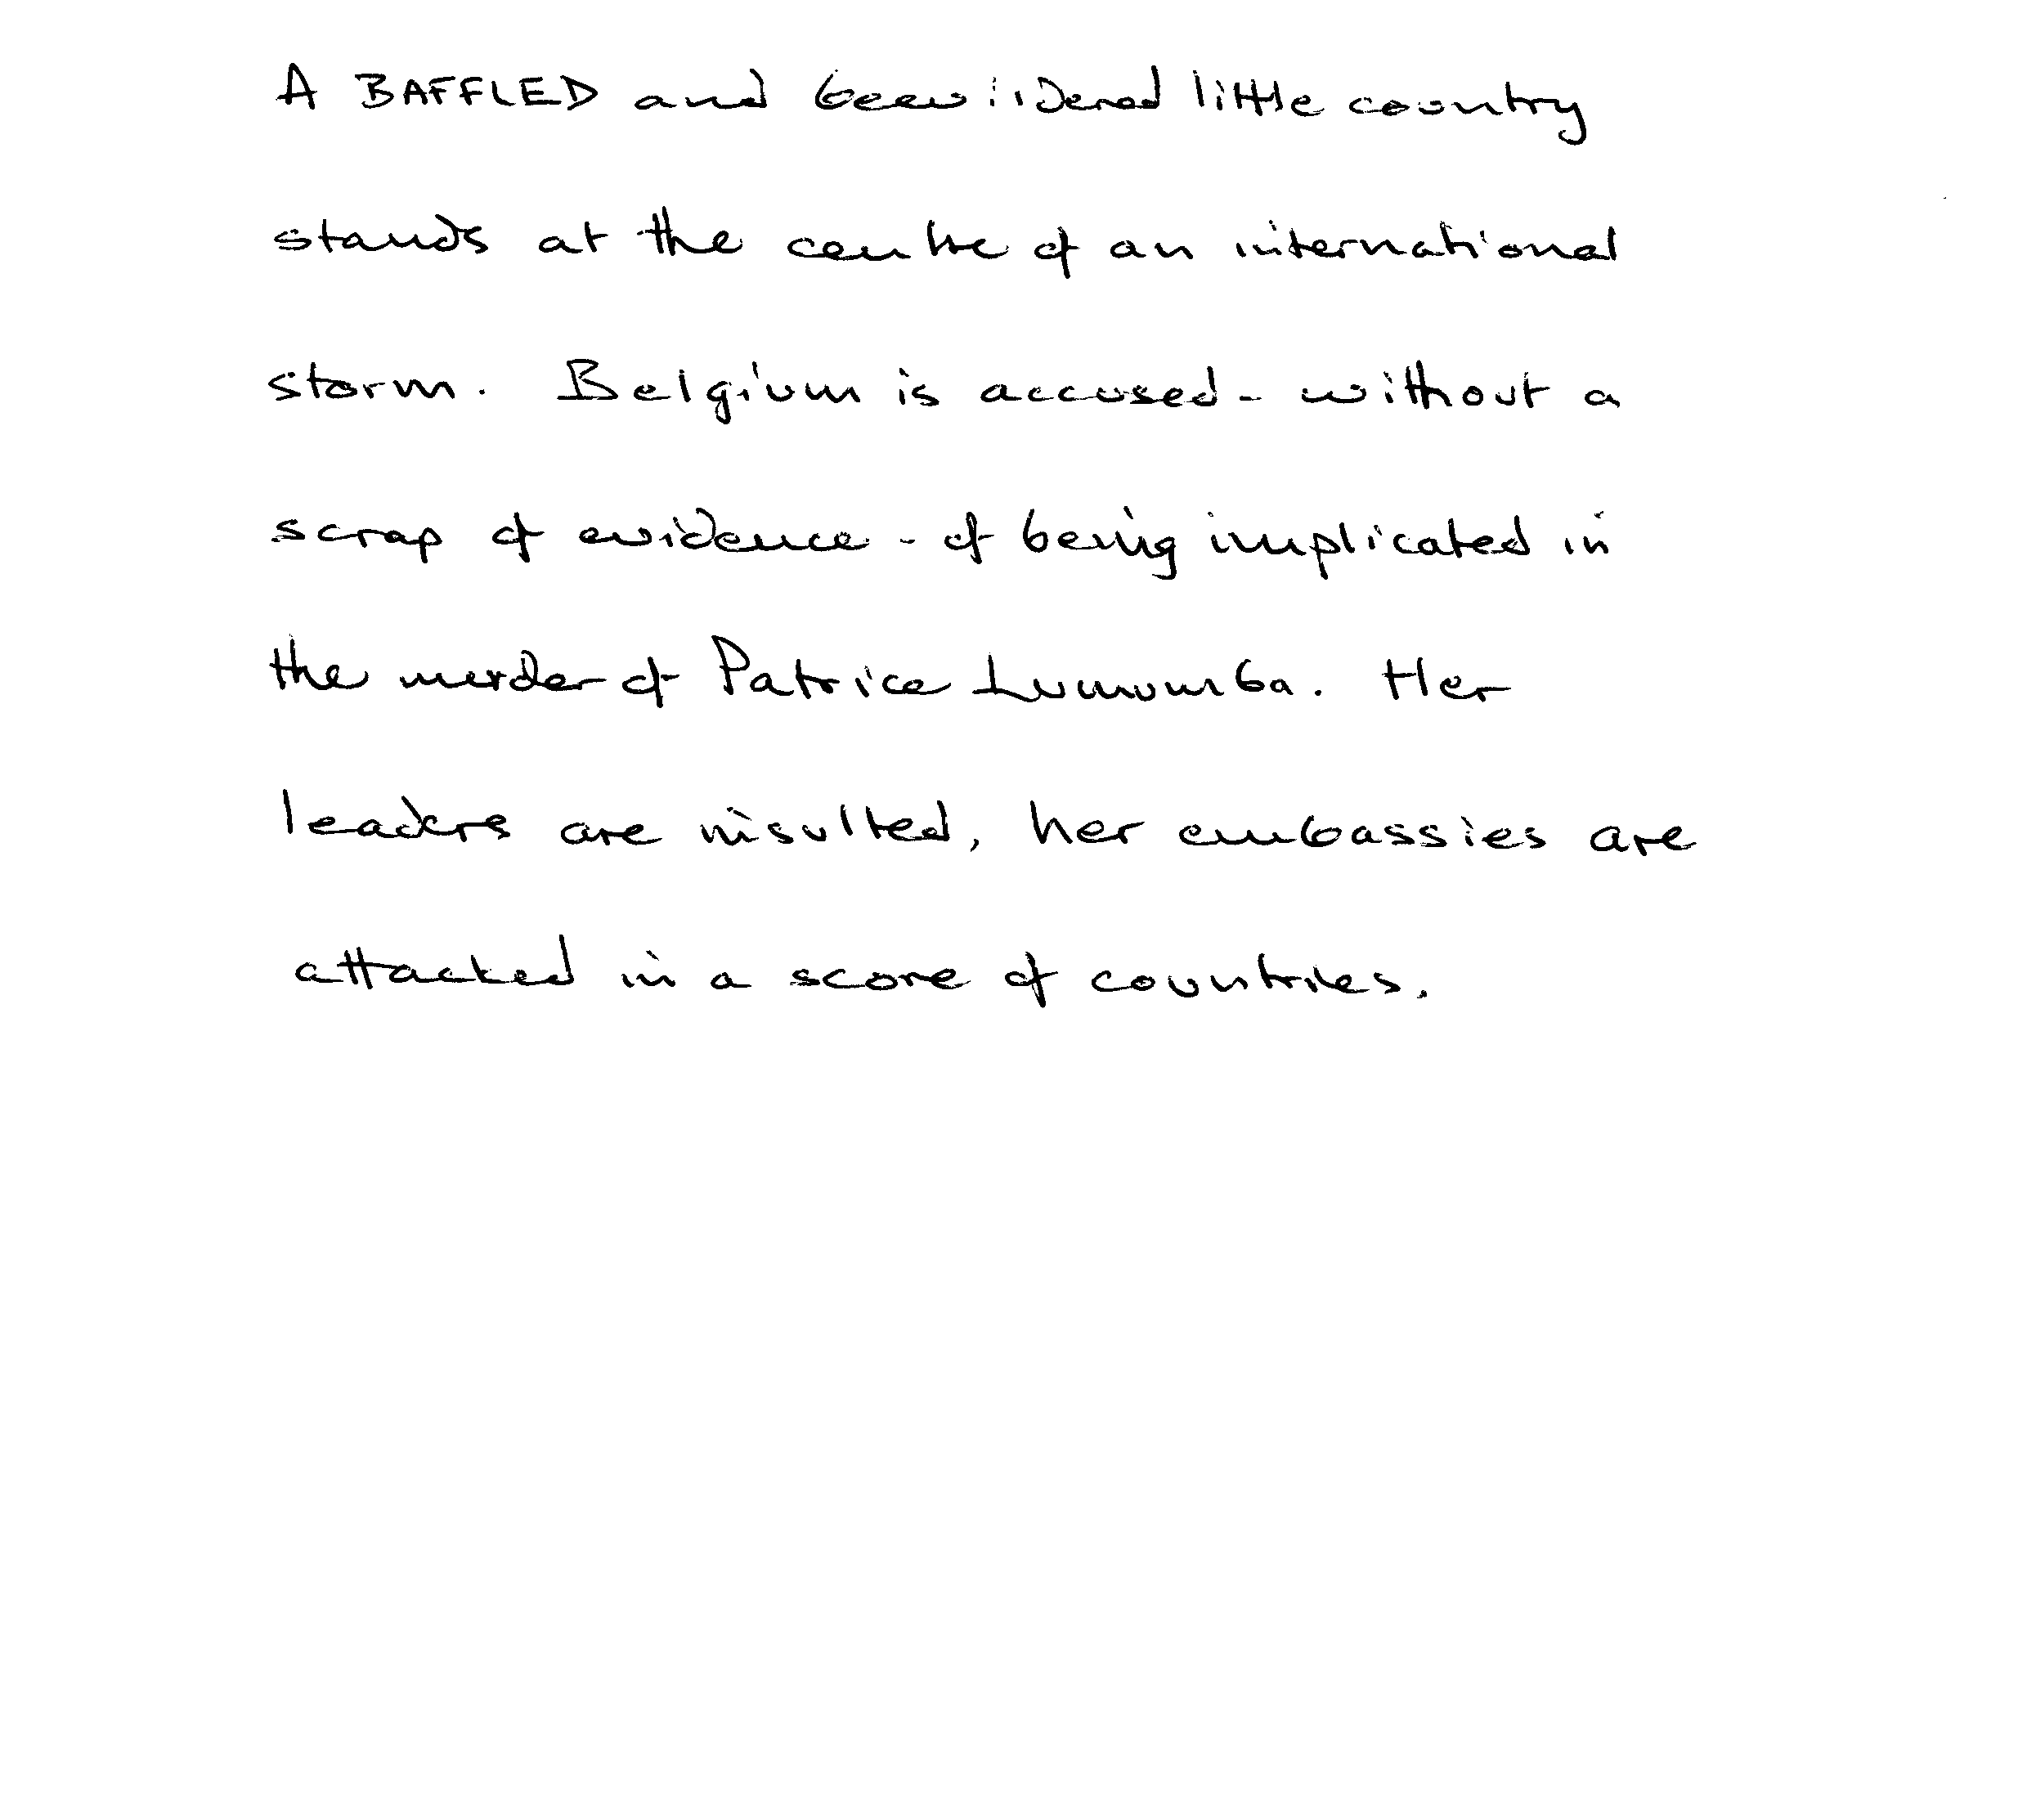 A BAFFLED and beewildered little country
stands at the centre of an international
storm. Belgium is accused - without a
scrap of evidence - of being implicated in
the murder of Patrice Lumumba. Her
leaders are insulted, her embassies are
attacked in a score of countries.